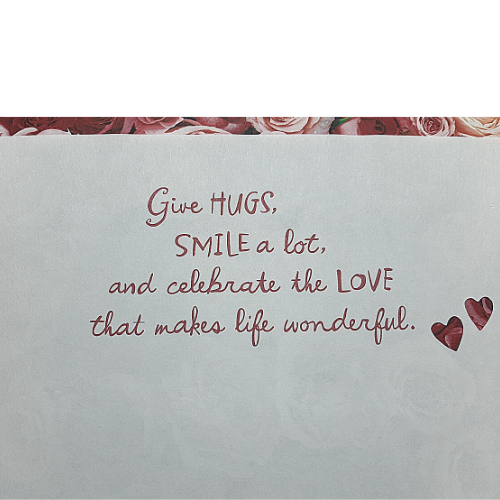 Give HUGS,
SMILE a lot,
and celebrate the LOVE
that makes life wonderful.